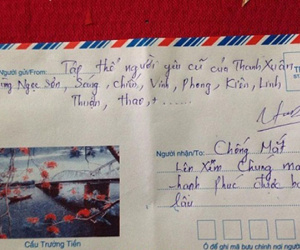 Người gửi/From: Tập thể người yêu cũ của Thanh Xuân
Ngọc Sơn, Sáng, Chiến, Vinh, Phong, Kiên, Linh
Thuận, thao, + ......
Người nhận/To: Chồng Mất
Lên Xóm Chung ma
hạnh phúc được b
lâu
Cầu Trường Tiền
Ô để ghi mã bưu chính nơi người